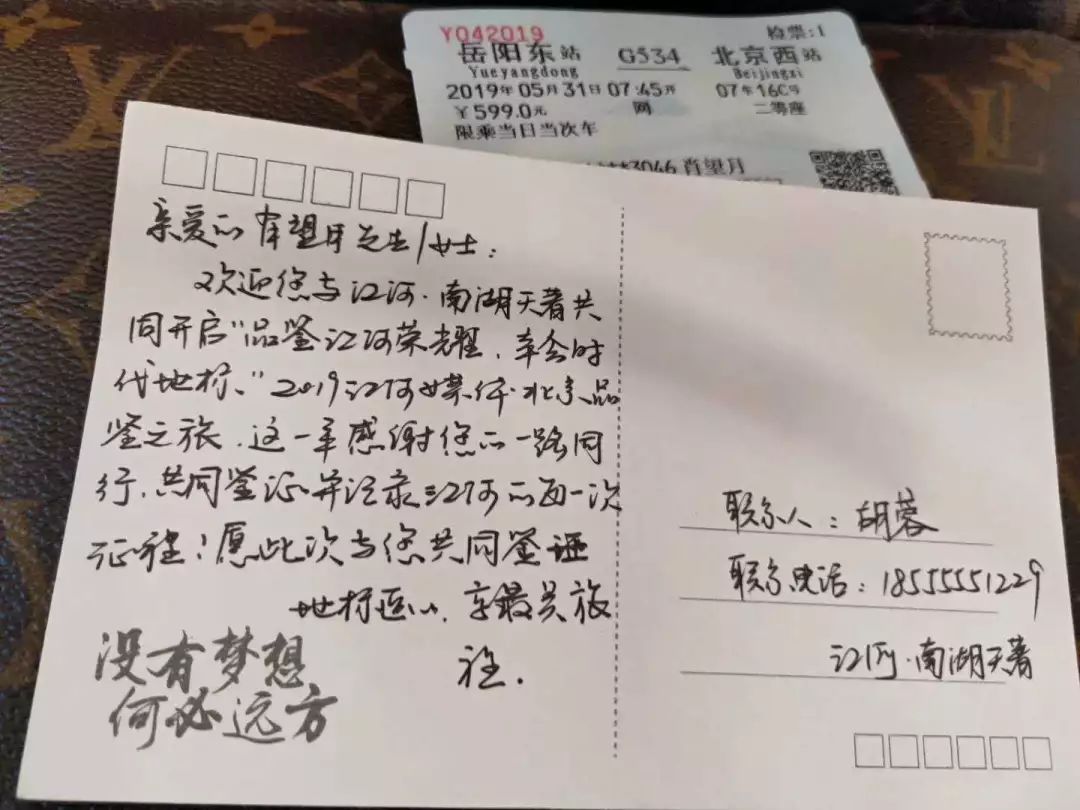 Y042019
检票:1
岳阳东站 G534 北京西站
Yueyangdong Beijingxi
2019年05月31日 07:45开 07车16C号
￥599.0元 网 二等座
限乘当日当次车
3046 肖望月
亲爱的肖望月先生/女士:
欢迎您与江河·南湖天著共
同开启"品鉴江河荣耀,幸会时
代地标。"2019江河媒体·北京品
鉴之旅,这一年感谢您的一路同
行,共同鉴证并记录江河的每一次
征程!愿此次与您共同鉴证
地标匠心,享最美旅
程.
没有梦想
何必远方
联系人:胡蓉
联系电话:18555551229
江河·南湖天著
LV